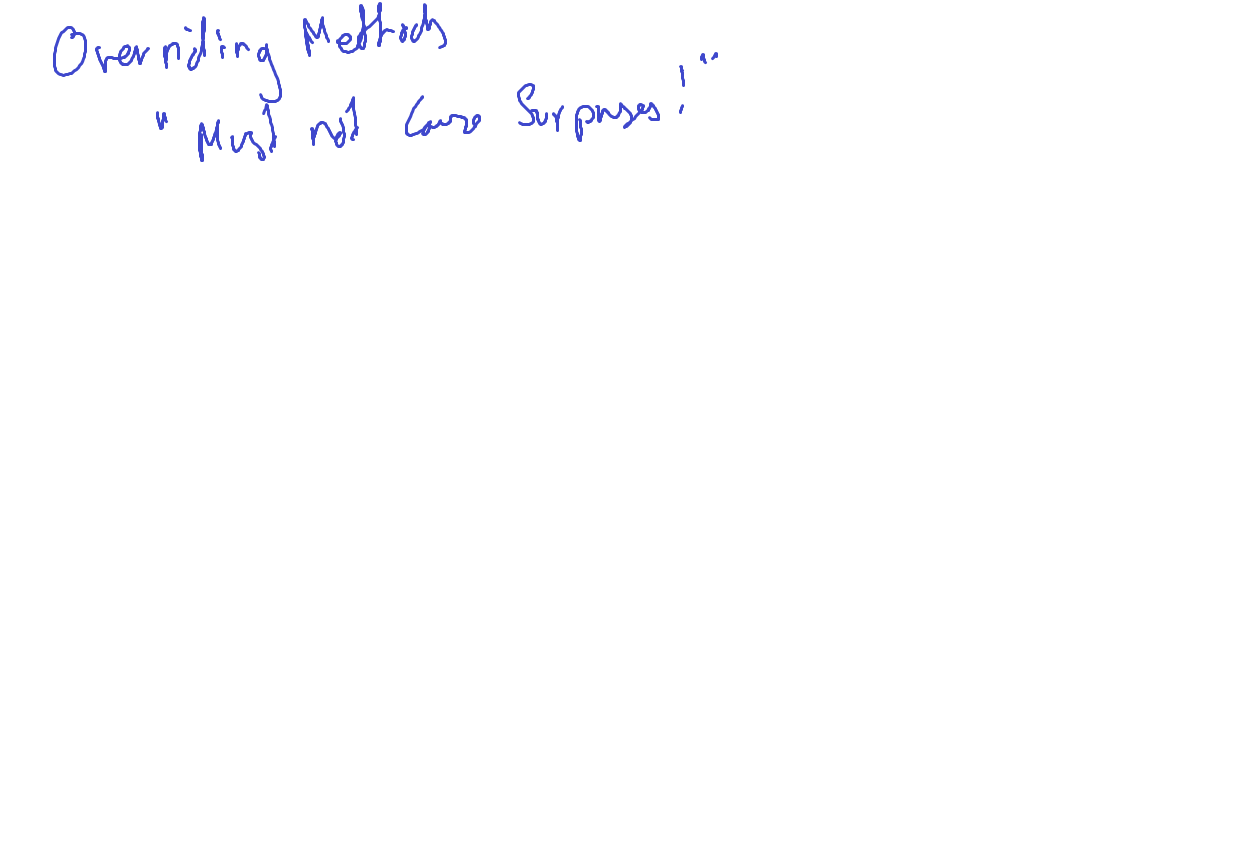 Overriding Methods
"Must not Cause Surprises!"